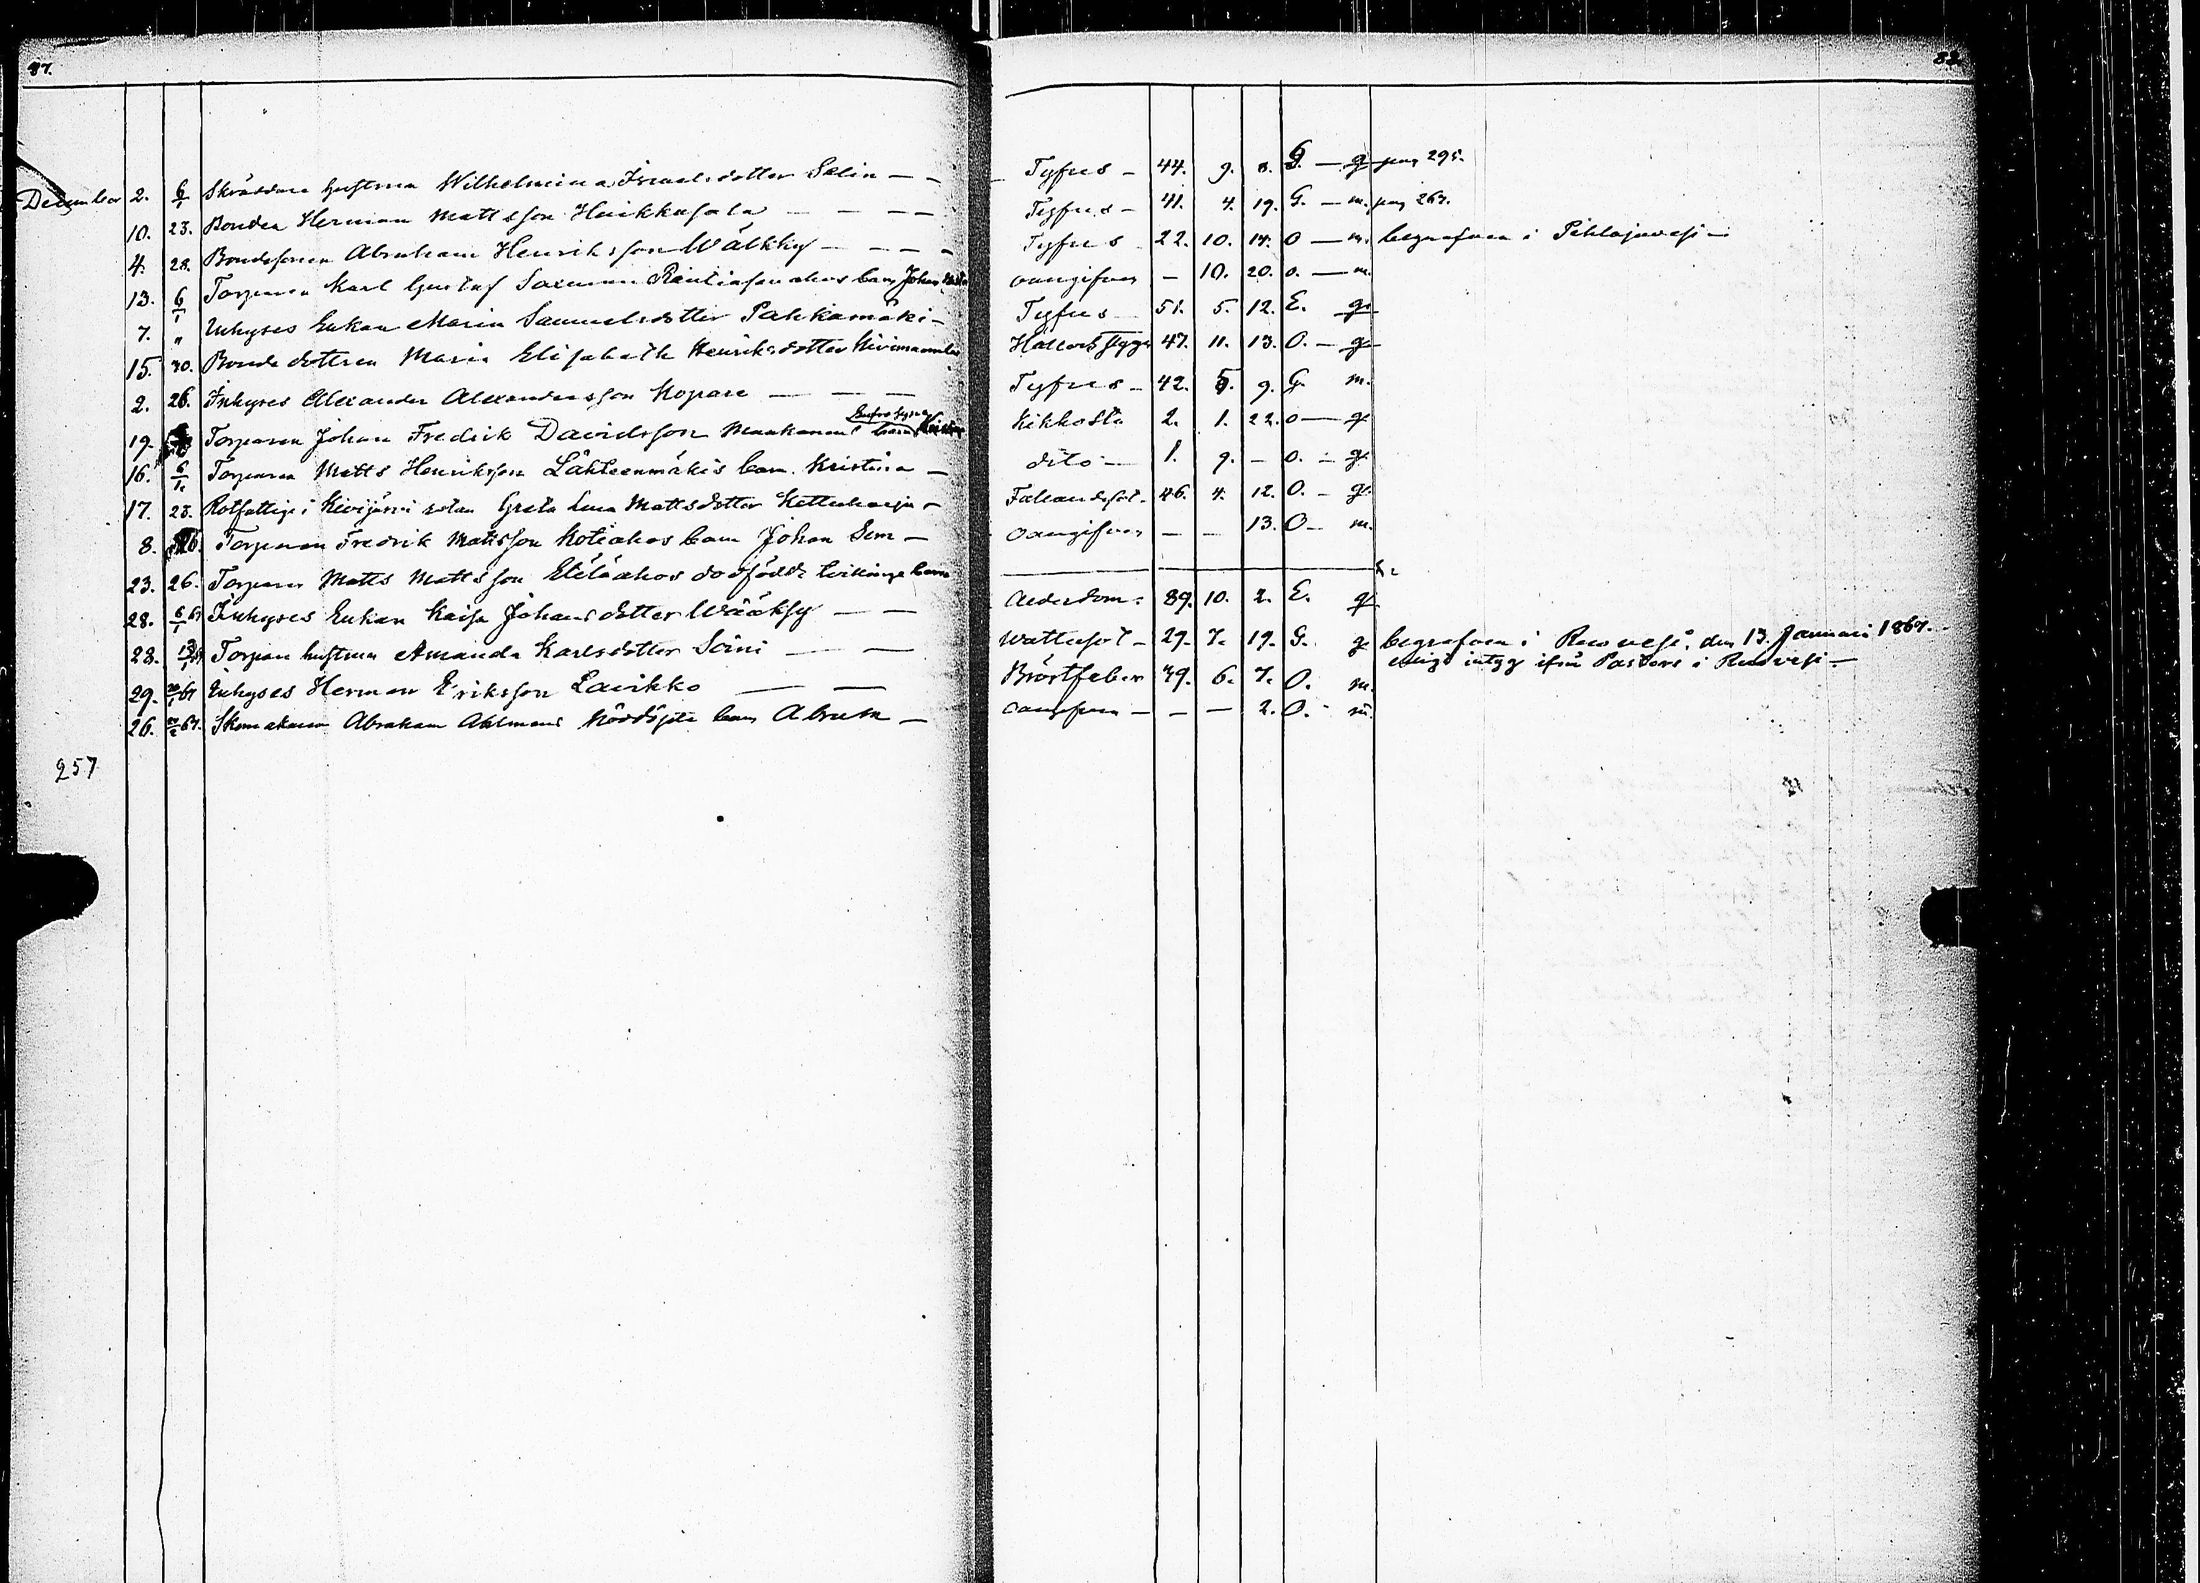 87.
88.
December 2. 6/1 Skräddare hustrun Wilhelmina Israelsdotter Selin — — Tyfus — 44. 9. 8. G. — q. pag 295.
10. 23. Bonden Herman Mattsson Haikkasala — — — Tyfus — 41. 4. 19. G. — m. pag 267.
4. 28. Bondesonen Abraham Henriksson Wälkky — — — Tyfus 22. 10. 14. O — m. begrafven i Pihlajavesi —
13. 6/1 Torparen Karl Gustaf barn Johan oangifven — 10. 20. o. — m.
7. " Inhyses Enkan Maria Samuelsdotter Pahkamäki — Tyfus 51. 5. 12. E. q.
15. 30. Bonde dottren Maria Elisabeth Henriksdotter Håll och stygn 47. 11. 13. O. — q.
2. 26. Inhyses Alexander Alexandersson Kopare — — — Tyfus — 42. 5. 9. G. m.
19. Torparen Johan Fredrik Davidsson barn Kikhosta 2. 1. 22. o — q
16. 6/1. Torparen Matts Henriksson Lähteenmäkis barn Kristina — dito — 1. 9. — o. — q.
17. 23. Rotfattige i Kivijärvi rotan Greta Lena Mattsdotter — 46. 4. 12. O. — q.
8. Torparen Fredrik Mattsson Kotiahos barn Johan — oangifven — — 13. O — m.
23. 26. Torparen Matts Mattsson Eteläahos dödfödde tvillinge barn
28. 6/1 67 Inhyses Enkan Kaisa Johansdotter Wääksy — — Ålderdom. 89. 10. 2. E. q.
28. 13/1 67 Torpare hustrun Amanda Karlsdotter Soini — — Wattusot — 27. 7. 19. G. q. begrafven i Ruovesi, den 13. Januari 1867.
enligt intyg ifrån Pastorn i Ruovesi —
29. 20/1 67 Inhyses Herman Eriksson Lavikko — — Bröstfeber 39. 6. 7. O. m.
26. 67. Skomakaren Abraham Ahlmans barn Abram — oangifven — — — 2. O. — m.
257